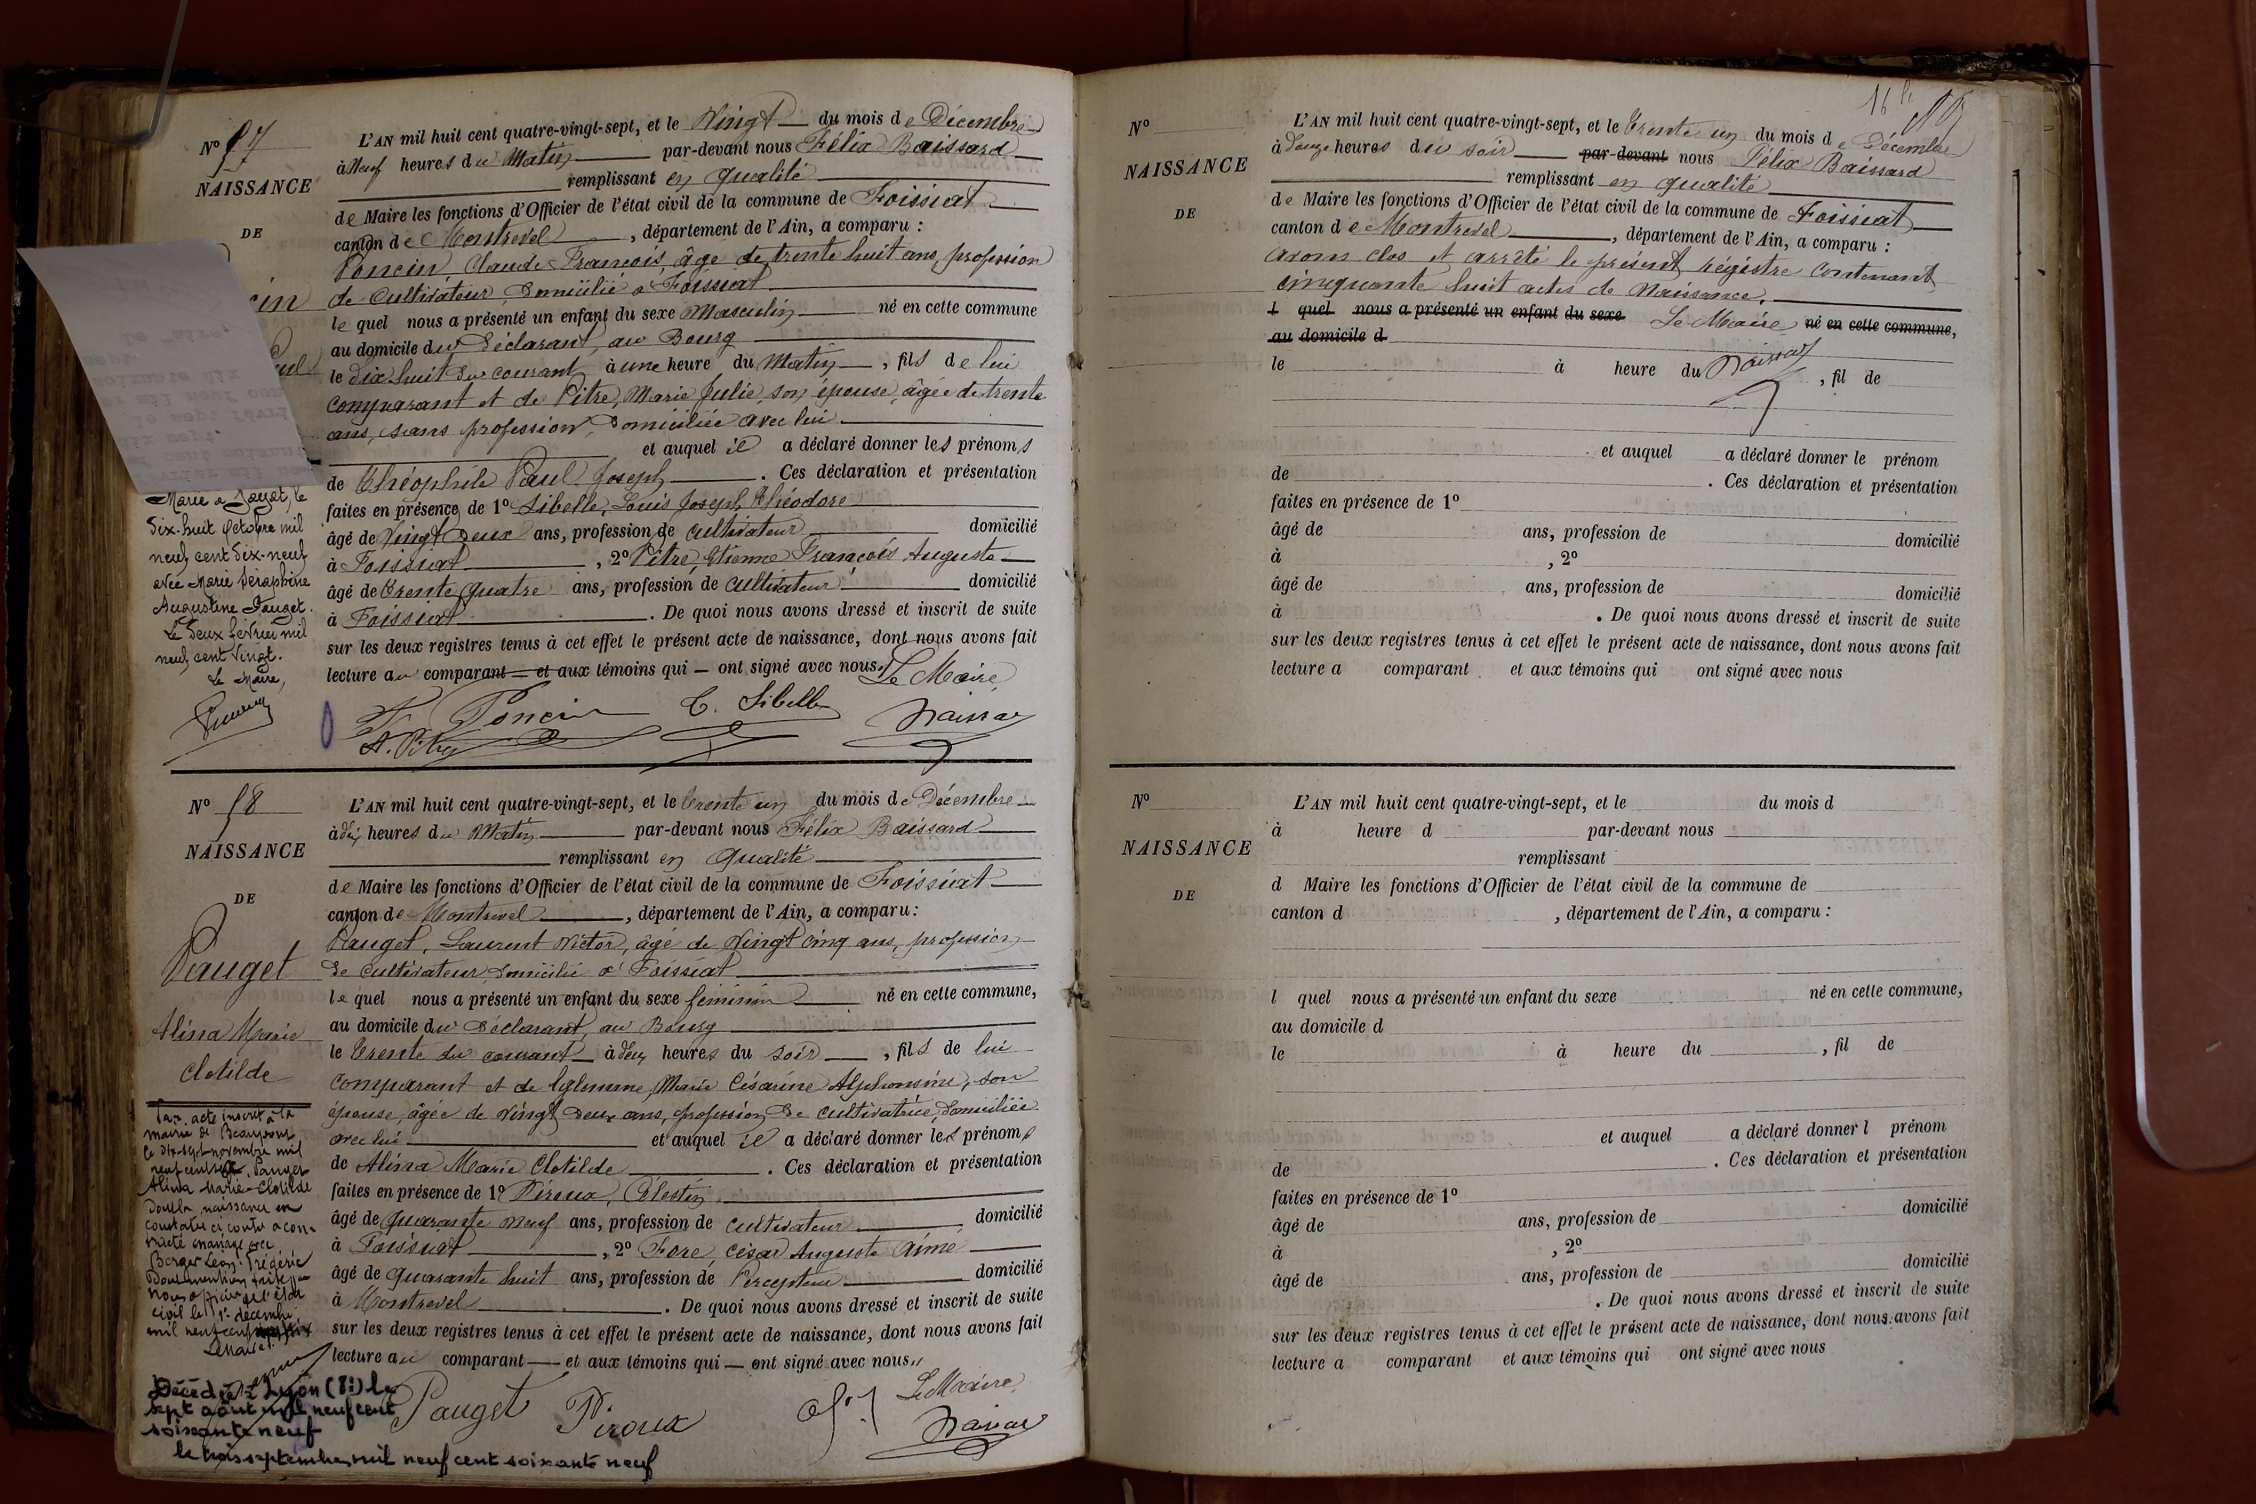 Nº 57
NAISSANCE
DE
cin
Paul
L'AN mil huit cent quatre-vingt-sept, et le Vingt du mois de Décembre
à Neuf heures du Matin par-devant nous Félix Baissard
remplissant en qualité
de Maire les fonctions d'Officier de l'état civil de la commune de Foissiat
canton de Montrevel, département de l'Ain, a comparu :
Poncin, Claude François, âgé de trente huit ans, profession
de Cultivateur, Domicilié à Foissiat
le quel nous a présenté un enfant du sexe Masculin né en cette commune
au domicile du Déclarant, au Bourg
le dix huit du courant, à une heure du Matin, fils de lui
comparant et de Pitre, Marie Julie, son épouse, âgée de trente
ans, sans profession, Domiciliée avec lui
et auquel il a déclaré donner les prénoms
de Théophile Paul Joseph. Ces déclaration et présentation
faites en présence de 1º Sibelle, Louis Joseph Théodore
âgé de Vingt Deux ans, profession de cultivateur domicilié
à Foissiat, 2º Pitre, Etienne François Auguste
âgé de Trente quatre ans, profession de Cultivateur domicilié
à Foissiat. De quoi nous avons dressé et inscrit de suite
sur les deux registres tenus à cet effet le présent acte de naissance, dont nous avons fait
lecture au comparant et aux témoins qui ont signé avec nous. Le Maire
Poncin T. Sibelle Baissard
A. Pitre
Marié à Jayat, le
dix-huit Octobre mil
neuf cent dix-neuf
avec Marie Séraphine
Augustine Pauget.
Le Deux février mil
neuf cent Vingt.
Le Maire,
Nº 58
NAISSANCE
DE
Pauget
Alina Marie
Clotilde
L'AN mil huit cent quatre-vingt-sept, et le trente un du mois de Décembre
à dix heures du Matin par-devant nous Félix Baissard
remplissant en qualité
de Maire les fonctions d'Officier de l'état civil de la commune de Foissiat
canton de Montrevel, département de l'Ain, a comparu :
Pauget, Laurent Victor, âgé de Vingt cinq ans, profession
de cultivateur, domicilié à Foissiat
le quel nous a présenté un enfant du sexe féminin né en cette commune,
au domicile du Déclarant, au Bourg
le Trente du courant à deux heures du soir, fils de lui
comparant et de Marie Césarine Alphonsine, son
épouse, âgée de Vingt Deux ans, profession de cultivatrice, domiciliée
avec lui et auquel il a déclaré donner les prénoms
de Alina Marie Clotilde. Ces déclaration et présentation
faites en présence de 1º Piroux, Célestin
âgé de quarante neuf ans, profession de cultivateur domicilié
à Foissiat, 2º Foré, César Auguste Aimé
âgé de quarante huit ans, profession de Percepteur domicilié
à Montrevel. De quoi nous avons dressé et inscrit de suite
sur les deux registres tenus à cet effet le présent acte de naissance, dont nous avons fait
lecture au comparant et aux témoins qui ont signé avec nous
Le Maire
Pauget Piroux Baissard
Par acte inscrit à la
mairie de Beaupont
le dix-sept novembre mil
neuf cent six, Pauget
Alina Marie-Clotilde
Dont la naissance est
constatée ci contre a con-
tracté mariage avec
Berger Léon Frédéric
Dont mention faite par
nous officier de l'état
civil le 1er décembre
mil neuf cent six
Le Maire
Décédée à Lyon (8e) le
sept août mil neuf cent
soixante neuf
le trois septembre mil neuf cent soixante neuf
Nº
NAISSANCE
DE
L'AN mil huit cent quatre-vingt-sept, et le trente un du mois de Décembre
à Douze heures du soir par-devant nous Félix Baissard
remplissant en qualité
de Maire les fonctions d'Officier de l'état civil de la commune de Foissiat
canton de Montrevel, département de l'Ain, a comparu :
avons clos et arrêté le présent régistre contenant
cinquante huit actes de Naissance.
l quel nous a présenté un enfant du sexe Le Maire né en cette commune,
au domicile d
le à heure du Baissard, fil de
et auquel a déclaré donner le prénom
de . Ces déclaration et présentation
faites en présence de 1º
âgé de ans, profession de domicilié
à , 2º
âgé de ans, profession de domicilié
à . De quoi nous avons dressé et inscrit de suite
sur les deux registres tenus à cet effet le présent acte de naissance, dont nous avons fait
lecture a comparant et aux témoins qui ont signé avec nous
Nº
NAISSANCE
DE
L'AN mil huit cent quatre-vingt-sept, et le du mois d
à heure d par-devant nous
remplissant
d Maire les fonctions d'Officier de l'état civil de la commune de
canton d , département de l'Ain, a comparu :
l quel nous a présenté un enfant du sexe né en cette commune,
au domicile d
le à heure du , fil de
et auquel a déclaré donner l prénom
de . Ces déclaration et présentation
faites en présence de 1º
âgé de ans, profession de domicilié
à , 2º
âgé de ans, profession de domicilié
. De quoi nous avons dressé et inscrit de suite
sur les deux registres tenus à cet effet le présent acte de naissance, dont nous avons fait
lecture a comparant et aux témoins qui ont signé avec nous